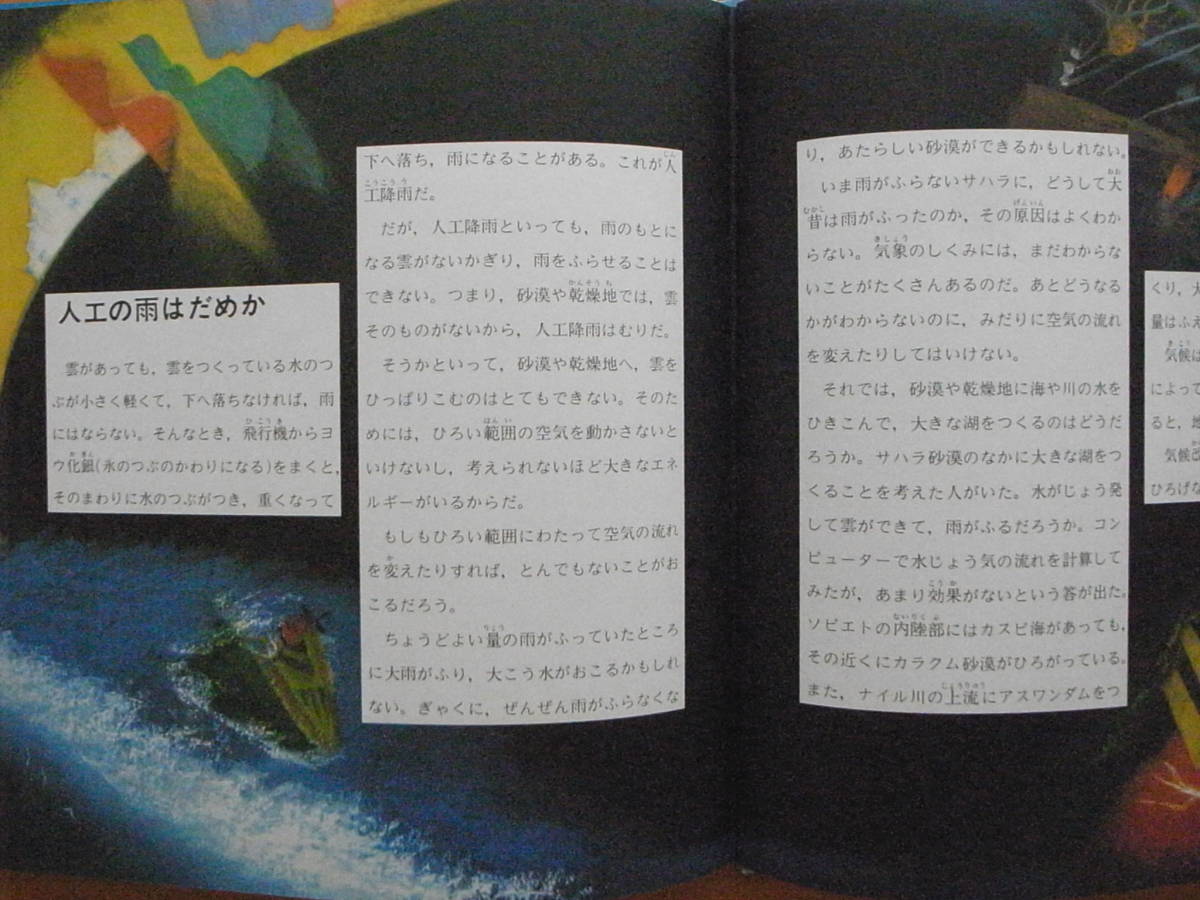 人工の雨はだめか
雲があっても，雲をつくっている水のつ
ぶが小さく軽くて，下へ落ちなければ，雨
にはならない。そんなとき，飛行機からヨ
ウ化銀(氷のつぶのかわりになる)をまくと，
そのまわりに水のつぶがつき，重くなって
下へ落ち，雨になることがある。これが人
工降雨だ。
だが，人工降雨といっても，雨のもとに
なる雲がないかぎり，雨をふらせることは
できない。つまり，砂漠や乾燥地では，雲
そのものがないから，人工降雨はむりだ。
そうかといって，砂漠や乾燥地へ，雲を
ひっぱりこむのはとてもできない。そのた
めには，ひろい範囲の空気を動かさないと
いけないし，考えられないほど大きなエネ
ルギーがいるからだ。
もしもひろい範囲にわたって空気の流れ
を変えたりすれば，とんでもないことがお
こるだろう。
ちょうどよい量の雨がふっていたところ
に大雨がふり，大こう水がおこるかもしれ
ない。ぎゃくに，ぜんぜん雨がふらなくな
り，あたらしい砂漠ができるかもしれない。
いま雨がふらないサハラに，どうして大
昔は雨がふったのか，その原因はよくわか
らない。気象のしくみには，まだわからな
いことがたくさんあるのだ。あとどうなる
かがわからないのに，みだりに空気の流れ
を変えたりしてはいけない。
それでは，砂漠や乾燥地に海や川の水を
ひきこんで，大きな湖をつくるのはどうだ
ろうか。サハラ砂漠のなかに大きな湖をつ
くることを考えた人がいた。水がじょう発
して雲ができて，雨がふるだろうか。コン
ピューターで水じょう気の流れを計算して
みたが，あまり効果がないという答が出た。
ソビエトの内陸部にはカスピ海があっても，
その近くにカラクム砂漠がひろがっている。
また，ナイル川の上流にアスワンダムをつ
くり，大
量はふえ
気候は
によって
ると，地
気候改
ひろげな